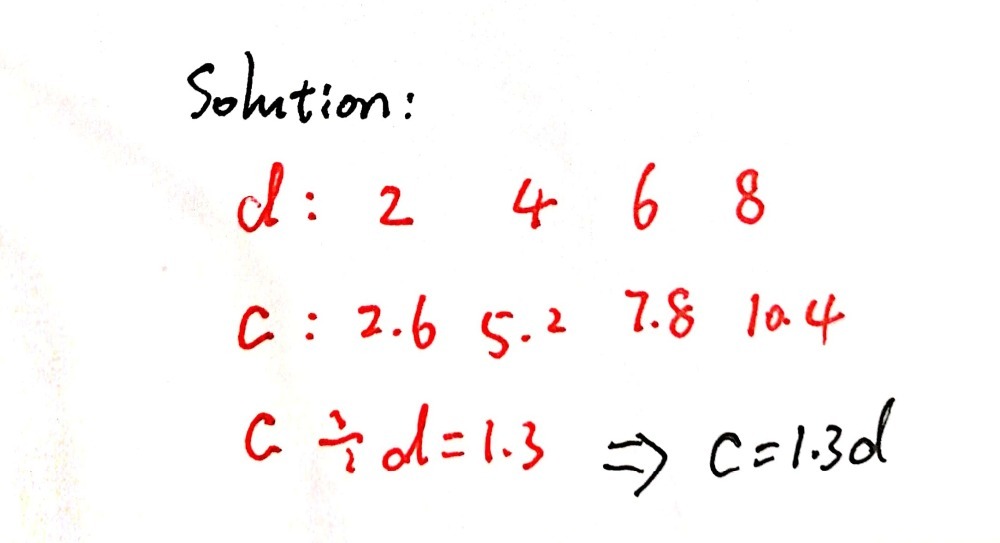 Solution:
d: 2 4 6 8
c: 2.6 5.2 7.8 10.4
c ÷ d=1.3 ⇒ c=1.3d